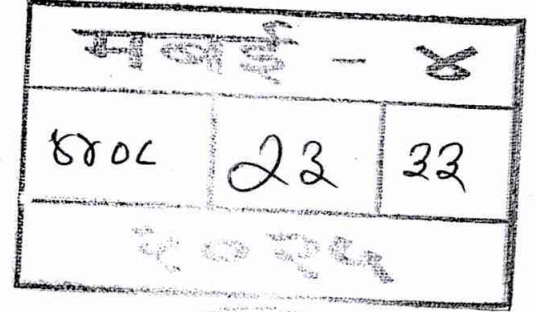 मबई - ४
४४०८ २३ ३३
२०२५